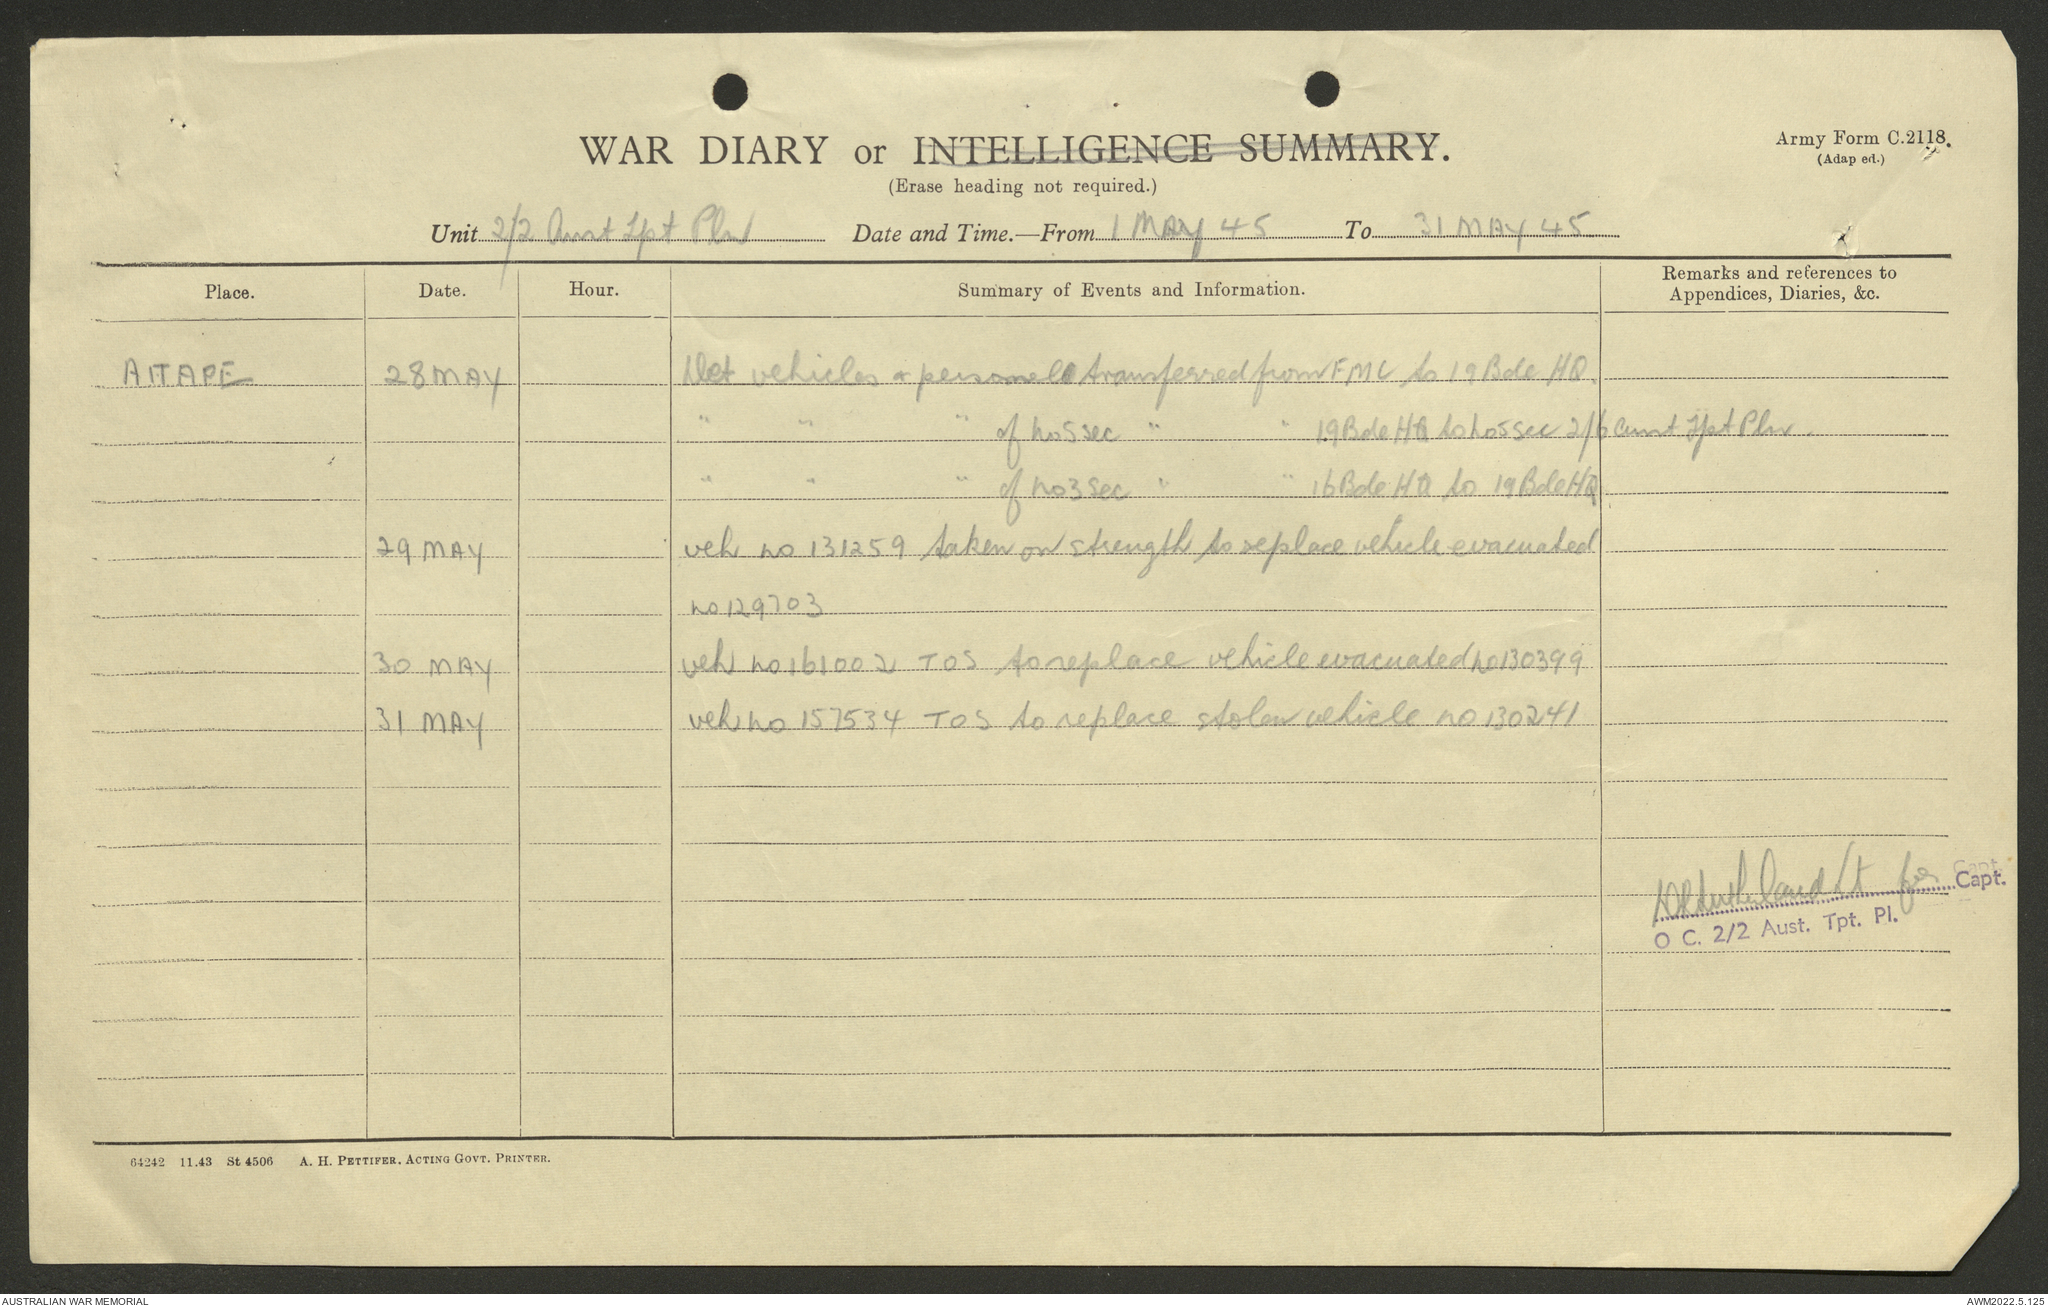 WAR DIARY or INTELLIGENCE SUMMARY.
(Erase heading not required.)
Army Form C.2118.
(Adap ed.)
Unit 2/2 Aust Tpt Pln Date and Time.—From 1 MAY 45 To 31 MAY 45
Place. Date. Hour. Summary of Events and Information. Remarks and references to Appendices, Diaries, &c.
AITAPE 28 MAY Det vehicles & personell transferred from FMC to 19 Bde HQ.
" " " of no 5 sec " " 19 Bde HQ to no 5 sec 2/6 Aust Tpt Pln.
" " " of no 3 sec " " 16 Bde HQ to 19 Bde HQ
29 MAY veh no 131259 taken on strength to replace vehicle evacuated
no 129703
30 MAY veh no 161002 TOS to replace vehicle evacuated no 130399
31 MAY veh no 157534 TOS to replace stolen vehicle no 130241
Lt for Capt.
O C. 2/2 Aust. Tpt. Pl.
64242 11.43 St 4506 A. H. PETTIFER, ACTING GOVT. PRINTER.
AUSTRALIAN WAR MEMORIAL
AWM2022.5.125